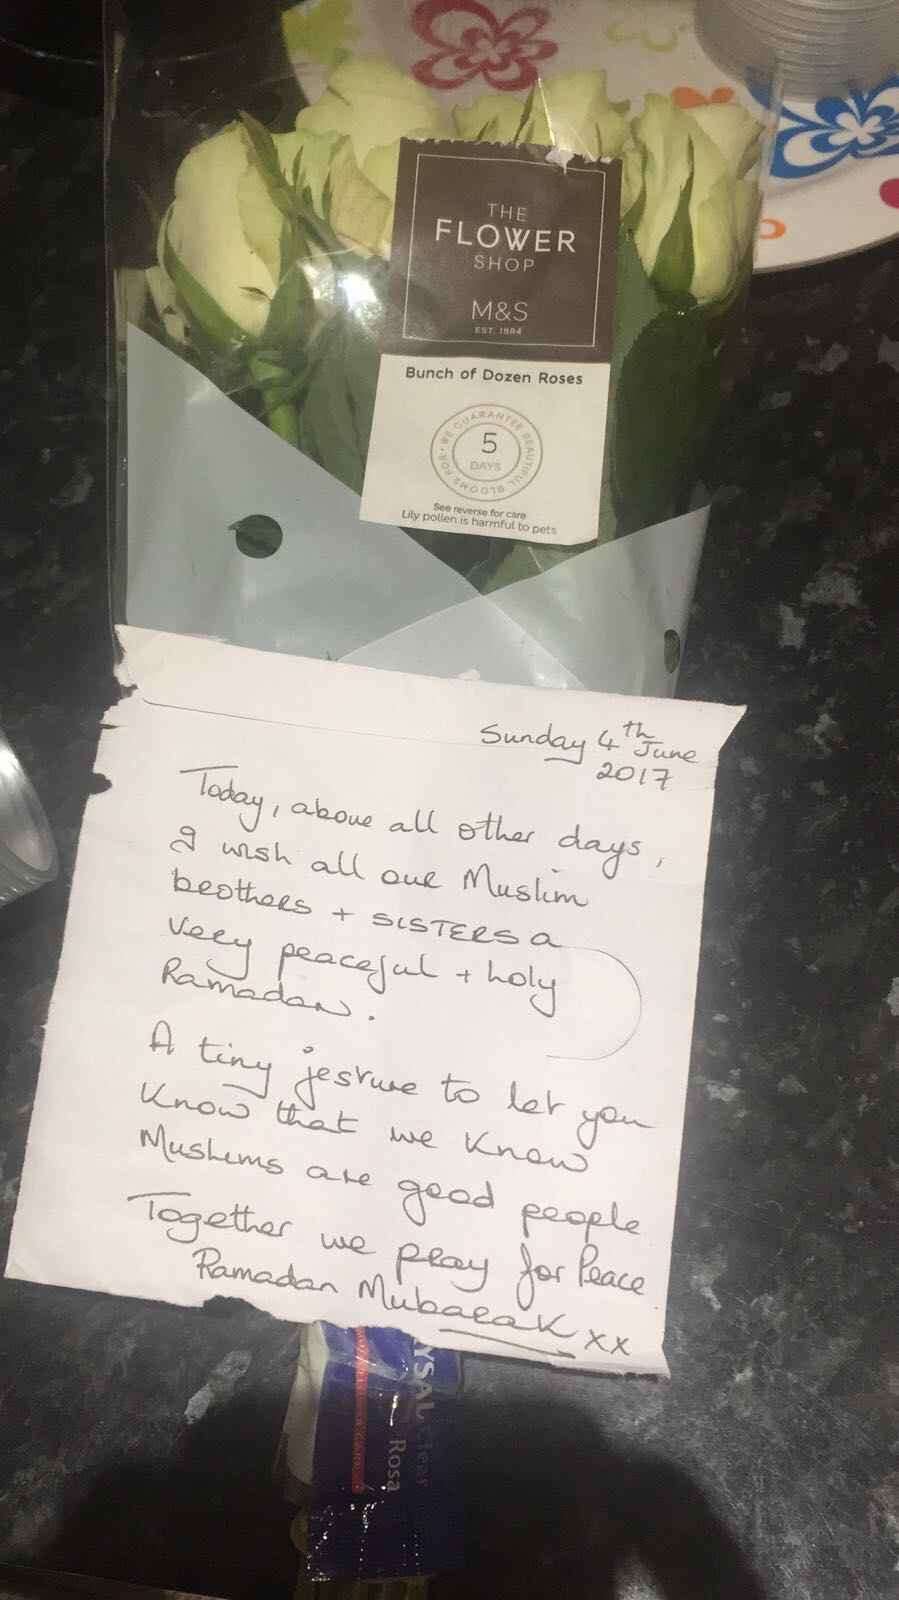 THE
FLOWER
SHOP
M&S
EST. 1884
Bunch of Dozen Roses
WE GUARANTEE BEAUTIFUL BLOOMS FOR
5
DAYS
See reverse for care
Lily pollen is harmful to pets
Sunday 4th June
2017
Today, above all other days,
I wish all our Muslim
brothers + SISTERS a
very peaceful + holy
Ramadan.
A tiny jesture to let you
know that we know
Muslims are good people
Together we pray for Peace
Ramadan Mubarak xx
YSAL Clear
Rosa